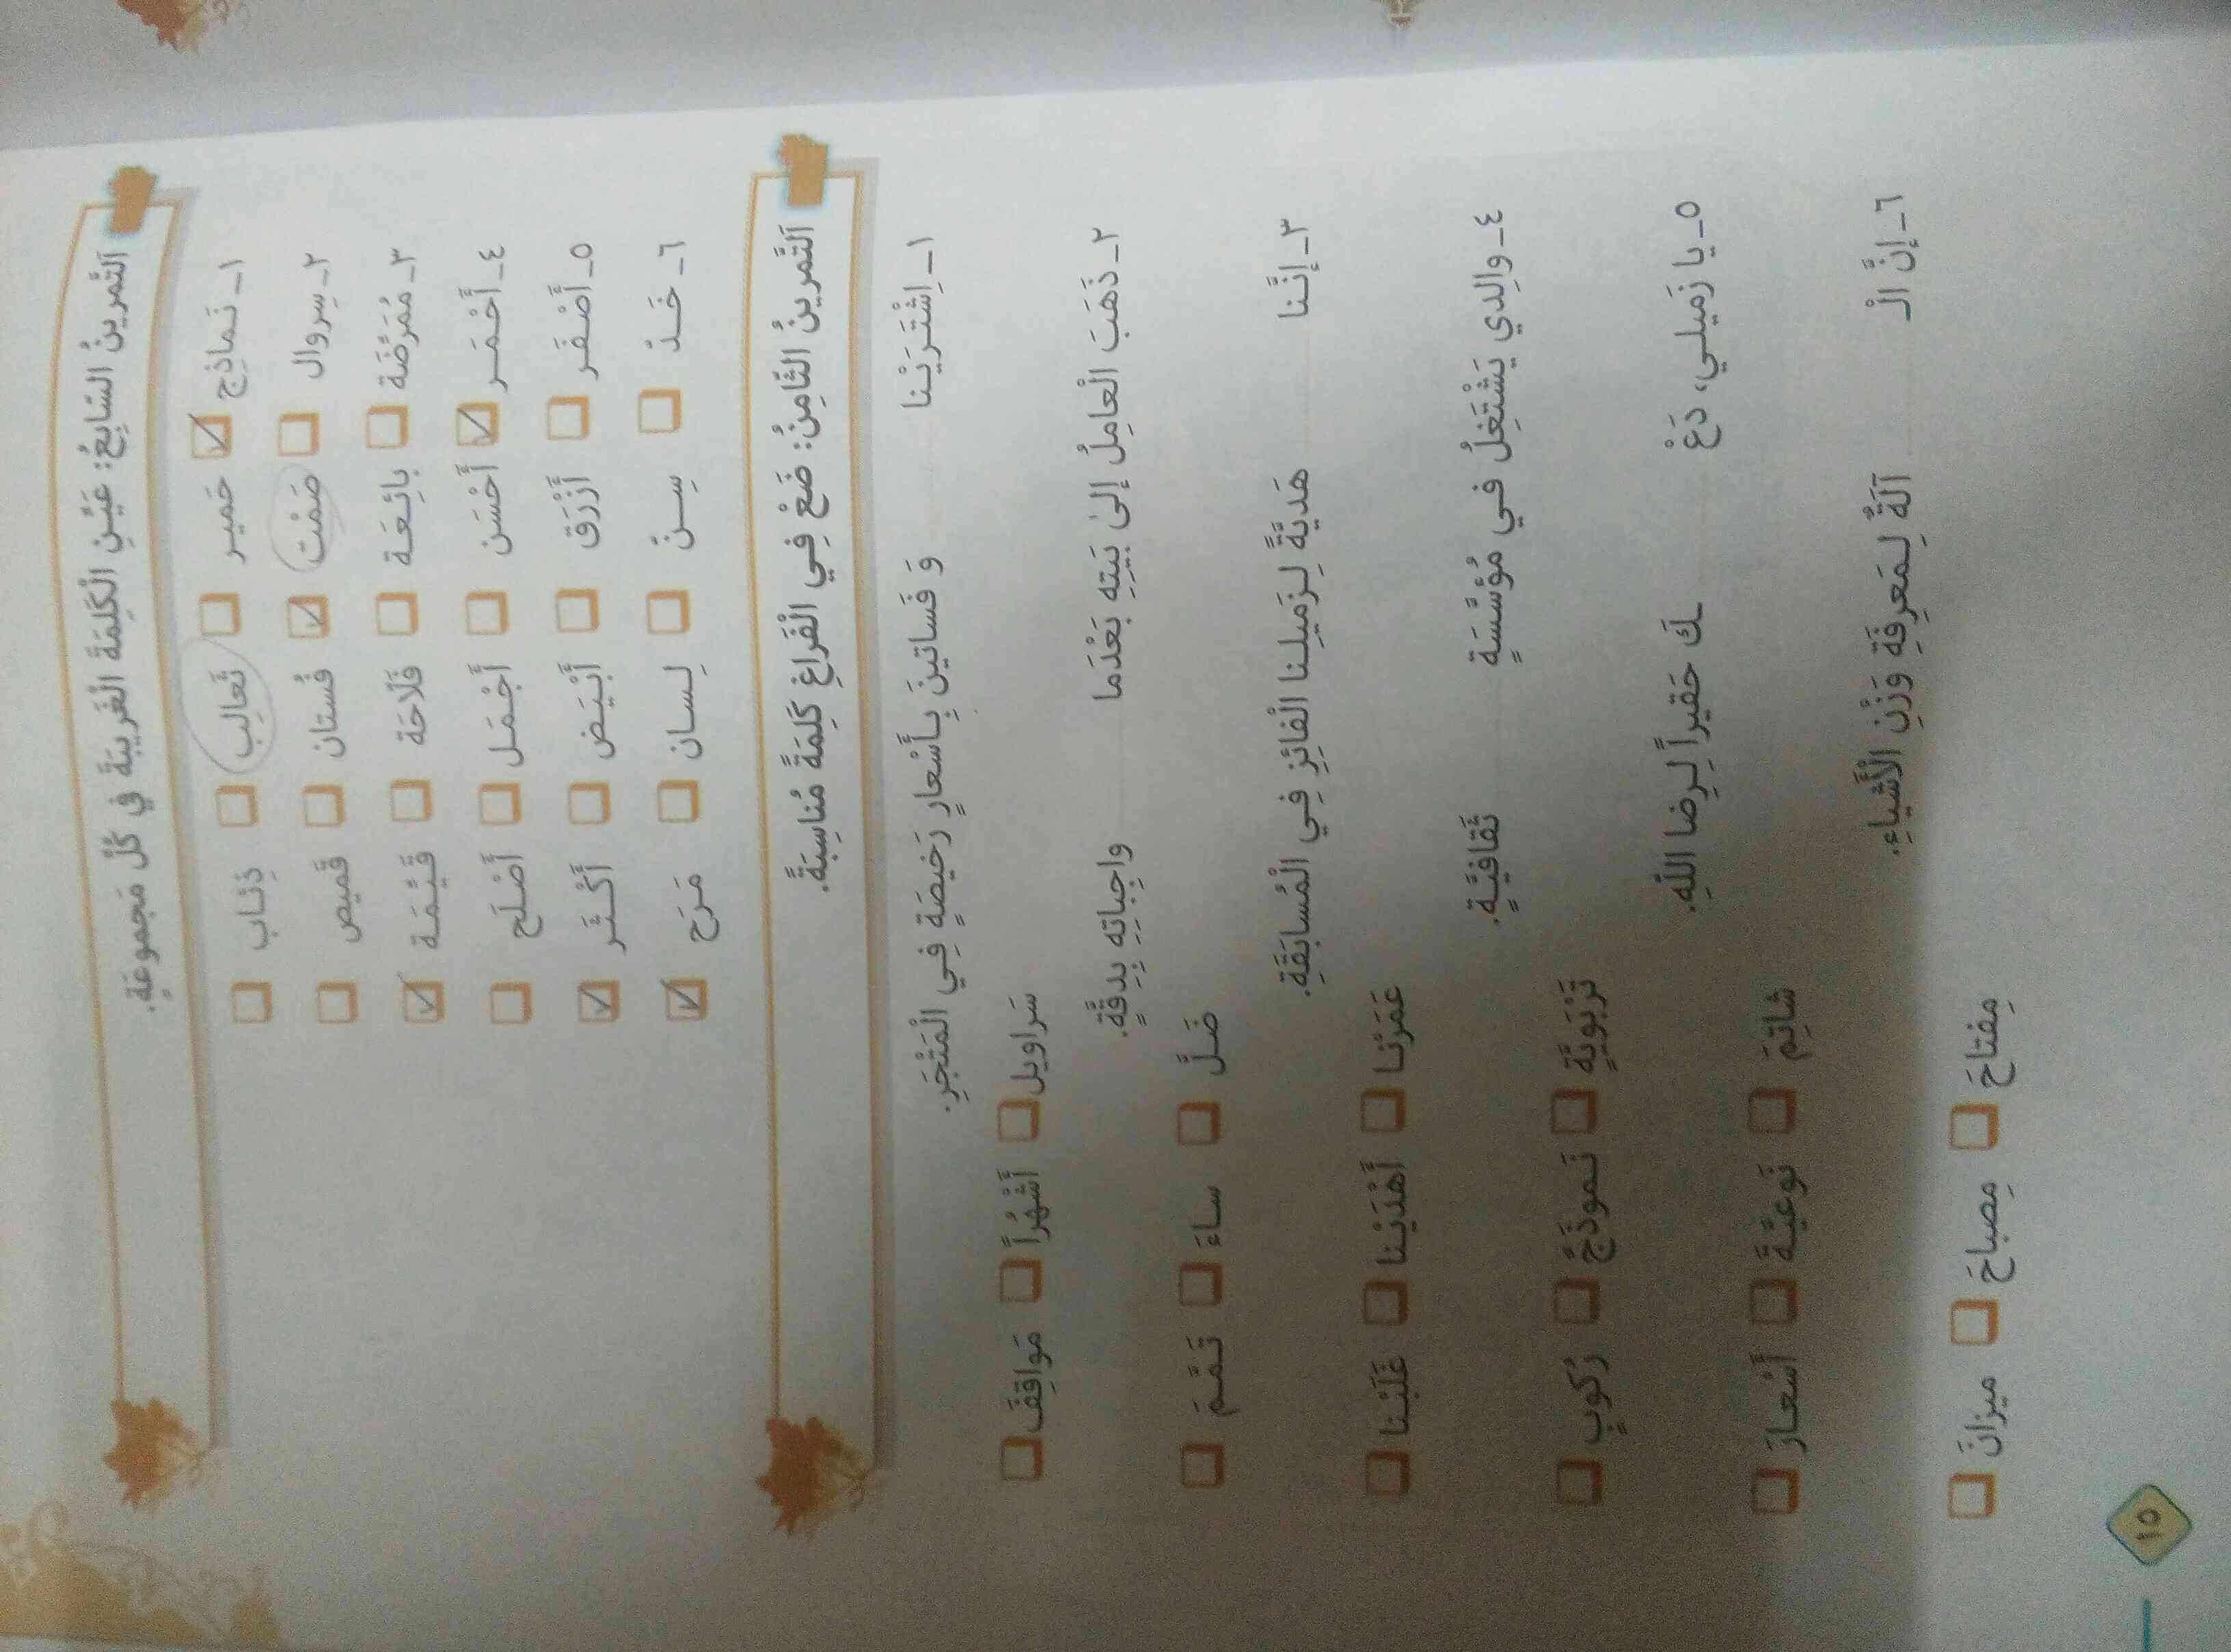 اَلتَّمرينُ السّابِعُ: عَيِّنِ الْكَلِمَةَ الْغَريبَةَ في كُلِّ مَجموعَةٍ.
١ـ نَماذِج ☑ حَمير ☐ ثَعالِب ☐ ذِئاب ☐
٢ـ سِروال ☐ صَمْت ☑ فُستان ☐ قَميص ☐
٣ـ مُمَرِّضَة ☐ بائِعَة ☐ فَلّاحَة ☐ قَيِّمَة ☑
٤ـ أَحْمَر ☑ أَحْسَن ☐ أَجْمَل ☐ أَصْلَح ☐
٥ـ أَصْفَر ☐ أَزْرَق ☐ أَبْيَض ☐ أَكْثَر ☑
٦ـ خَدّ ☐ سِنّ ☐ لِسان ☐ مَرَح ☑
اَلتَّمرينُ الثّامِنُ: ضَعْ فِي الْفَراغِ كَلِمَةً مُناسِبَةً.
١ـ اِشْتَرَيْنا وَ فَساتينَ بِأَسْعارٍ رَخيصَةٍ فِي الْمَتْجَرِ.
سَراويل ☐ أَشْهُراً ☐ مَواقِفَ ☐
٢ـ ذَهَبَ الْعامِلُ إلىٰ بَيتِهِ بَعْدَما واجِباتِهِ بِدِقَّةٍ.
ضَلَّ ☐ ساءَ ☐ تَمَّمَ ☐
٣ـ إنَّنا هَديَّةً لِزَميلِنا الْفائِزِ فِي الْمُسابَقَةِ.
عَمَرْنا ☐ أَهْدَيْنا ☐ غَلَبْنا ☐
٤ـ والِدي يَشْتَغِلُ في مُؤَسَّسَةٍ ثَقافيَّةٍ.
تَرْبَويَّةٍ ☐ نَموذَجٌ ☐ رُكوبٍ ☐
٥ـ يا زَميلي، دَعْ ـكَ حَقيراً لِرِضا اللّٰهِ.
شاتِمَ ☐ نَوعيَّةَ ☐ أَسْعارَ ☐
٦ـ إنَّ الْـ آلَةٌ لِمَعرِفَةِ وَزْنِ الْأَشْياءِ.
مِفتاحَ ☐ مِصباحَ ☐ ميزانَ ☐
١٥